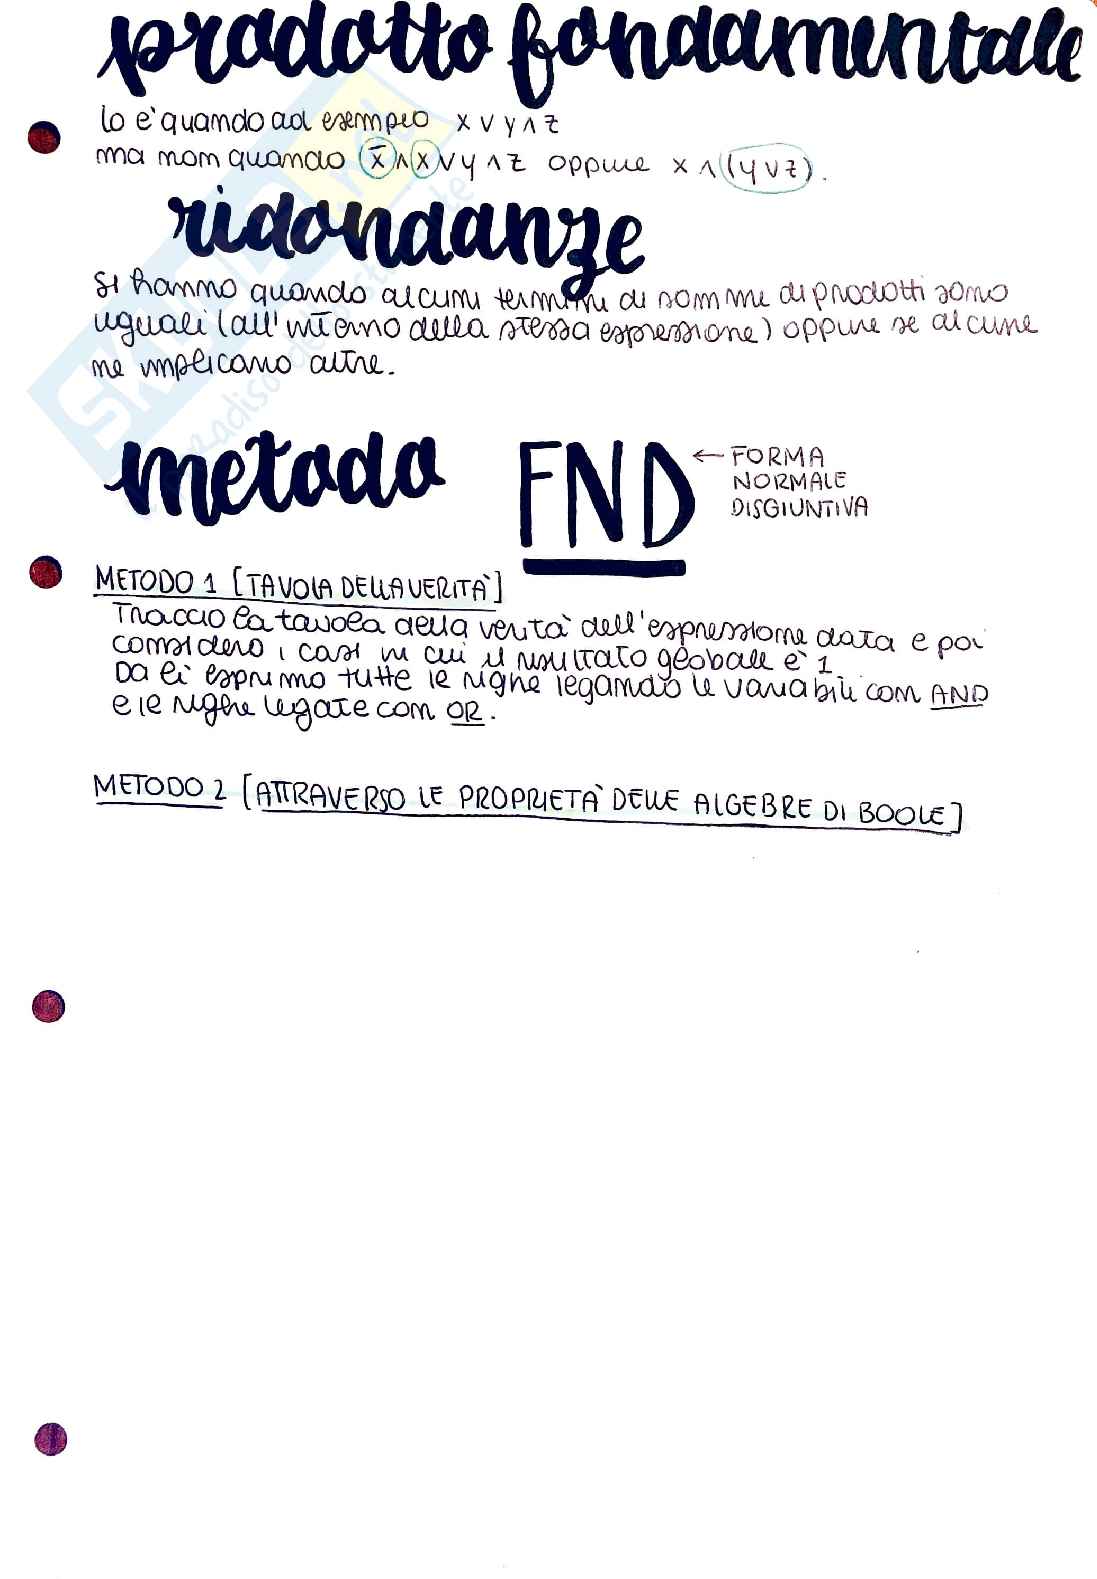 prodotto fondamentale
lo è quando ad esempio x ∨ y ∧ z
ma non quando x̄ ∧ x ∨ y ∧ z oppure x ∧ (y ∨ z).
ridondanze
si hanno quando alcuni termini di somme di prodotti sono
uguali (all'interno della stessa espressione) oppure se alcune
ne implicano altre.
metodo FND ← FORMA
NORMALE
DISGIUNTIVA
METODO 1 [TAVOLA DELLA VERITÀ]
Traccio la tavola della verità dell'espressione data e poi
considero i casi in cui il risultato globale è 1
Da lì esprimo tutte le righe legando le variabili con AND
e le righe legate con OR.
METODO 2 [ATTRAVERSO LE PROPRIETÀ DELLE ALGEBRE DI BOOLE]